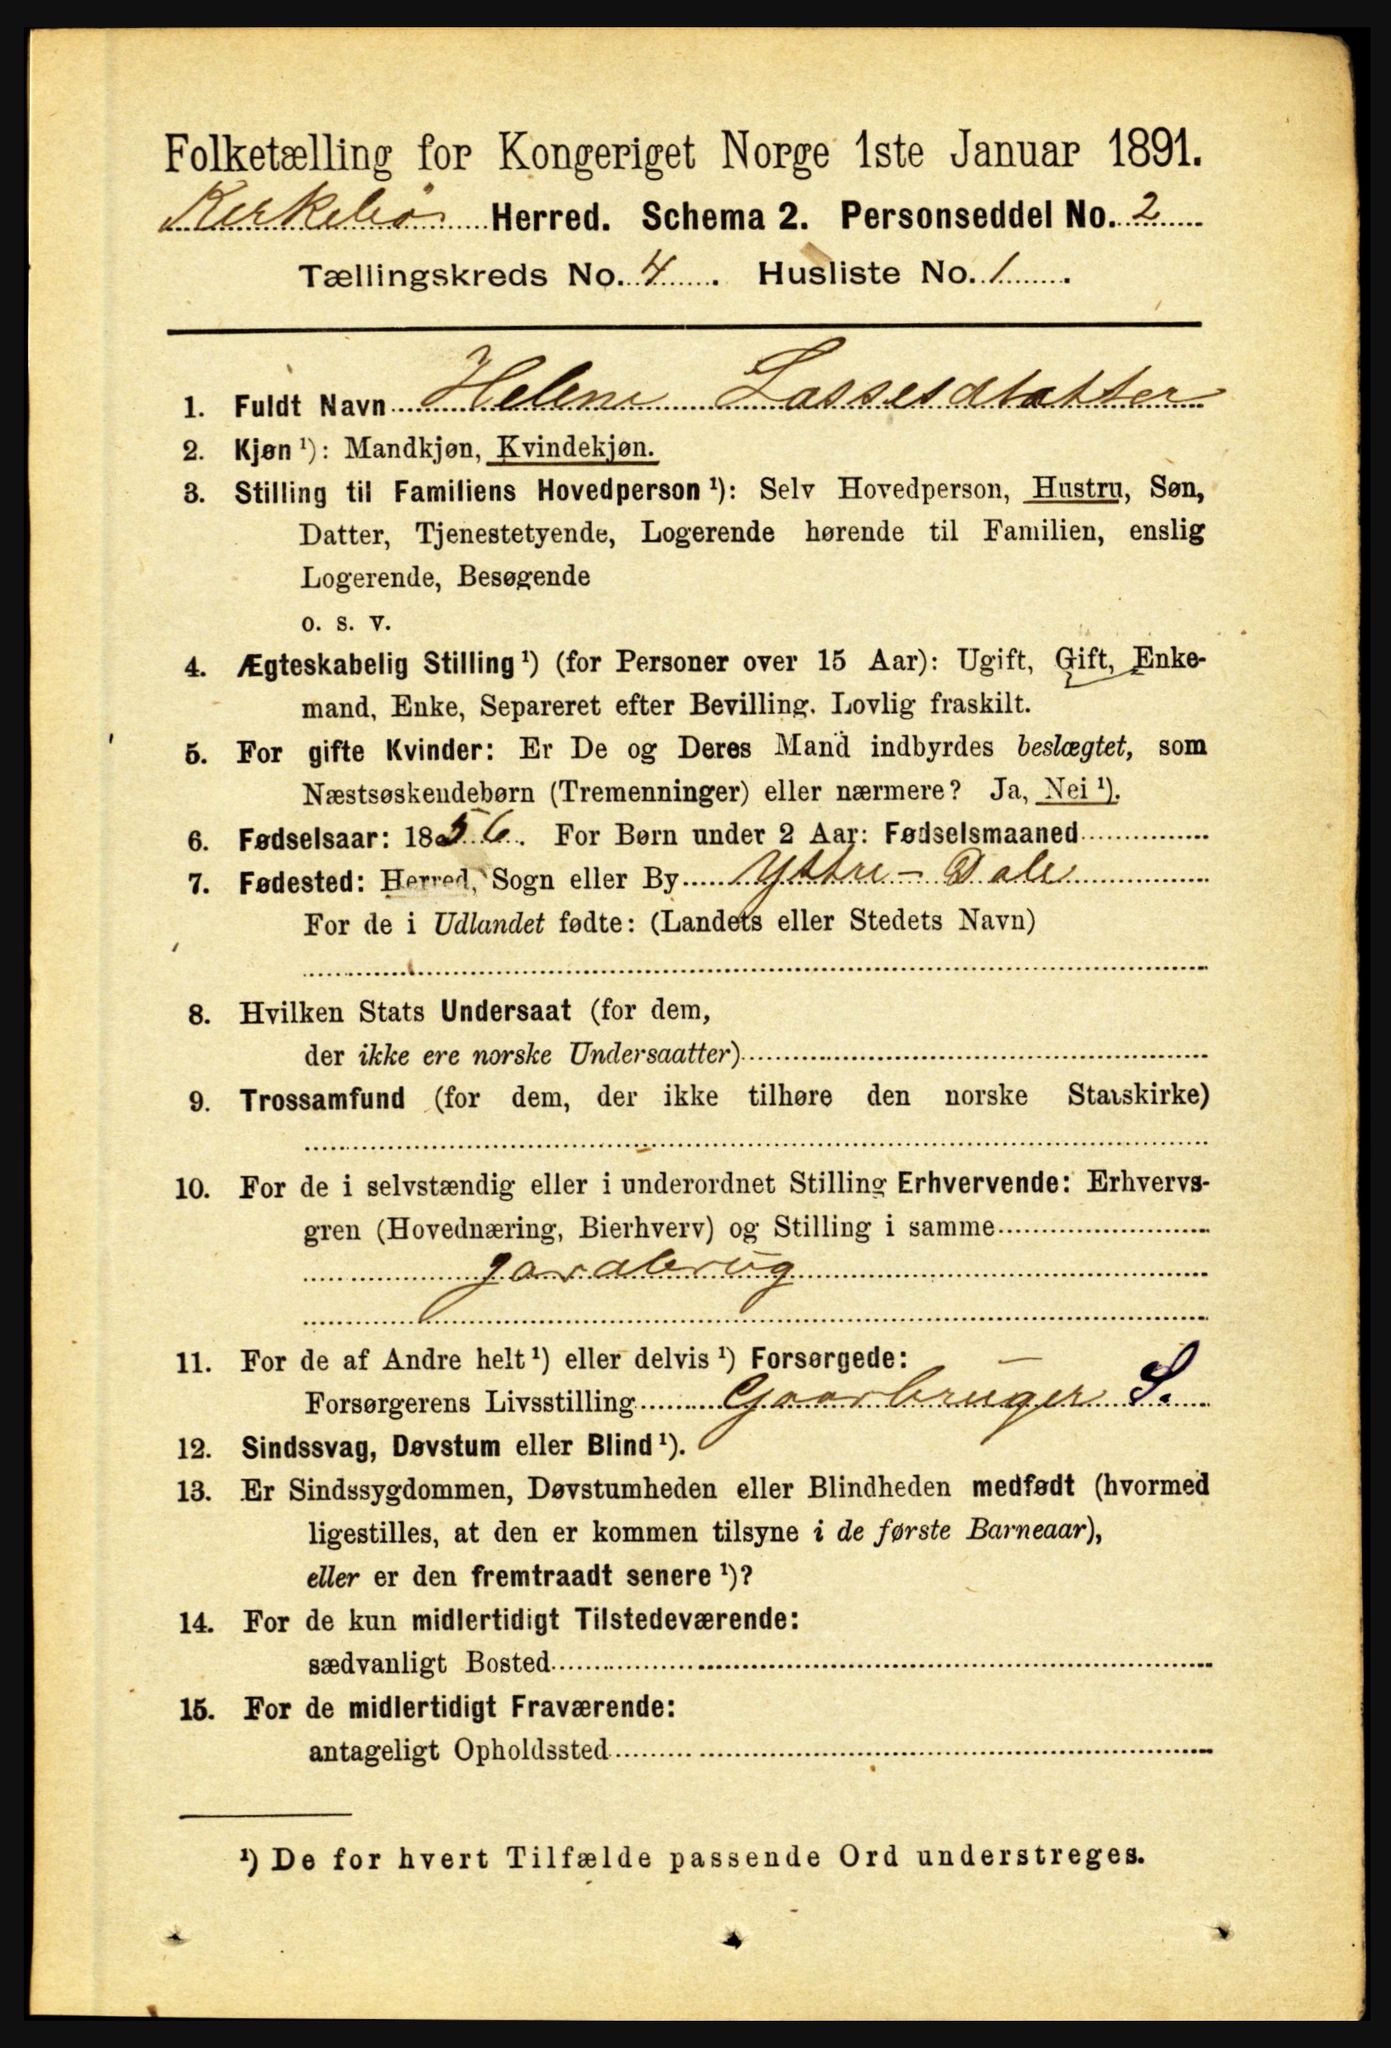 Folketælling for Kongeriget Norge 1ste Januar 1891.
Kirkebø Herred. Schema 2. Personseddel No. 2
Tællingskreds No. 4. Husliste No. 1.
1. Fuldt Navn Helene Lassesdtatter
2. Kjøn ¹): Mandkjøn, Kvindekjøn.
3. Stilling til Familiens Hovedperson ¹): Selv Hovedperson, Hustru, Søn,
Datter, Tjenestetyende, Logerende hørende til Familien, enslig
Logerende, Besøgende
o. s. v.
4. Ægteskabelig Stilling ¹) (for Personer over 15 Aar): Ugift, Gift, Enke-
mand, Enke, Separeret efter Bevilling. Lovlig fraskilt.
5. For gifte Kvinder: Er De og Deres Mand indbyrdes beslægtet, som
Næstsøskendebørn (Tremenninger) eller nærmere? Ja, Nei ¹).
6. Fødselsaar: 1856. For Børn under 2 Aar: Fødselsmaaned
7. Fødested: Herred, Sogn eller By Yttre - Dale
For de i Udlandet fødte: (Landets eller Stedets Navn)
8. Hvilken Stats Undersaat (for dem,
der ikke ere norske Undersaatter)
9. Trossamfund (for dem, der ikke tilhøre den norske Statskirke)
10. For de i selvstændig eller i underordnet Stilling Erhvervende: Erhvervs-
gren (Hovednæring, Bierhverv) og Stilling i samme
gardbrug
11. For de af Andre helt ¹) eller delvis ¹) Forsørgede:
Forsørgerens Livsstilling Gaarbruger S.
12. Sindssvag, Døvstum eller Blind ¹).
13. Er Sindssygdommen, Døvstumheden eller Blindheden medfødt (hvormed
ligestilles, at den er kommen tilsyne i de første Barneaar),
eller er den fremtraadt senere ¹)?
14. For de kun midlertidigt Tilstedeværende:
sædvanligt Bosted
15. For de midlertidigt Fraværende:
antageligt Opholdssted
¹) De for hvert Tilfælde passende Ord understreges.